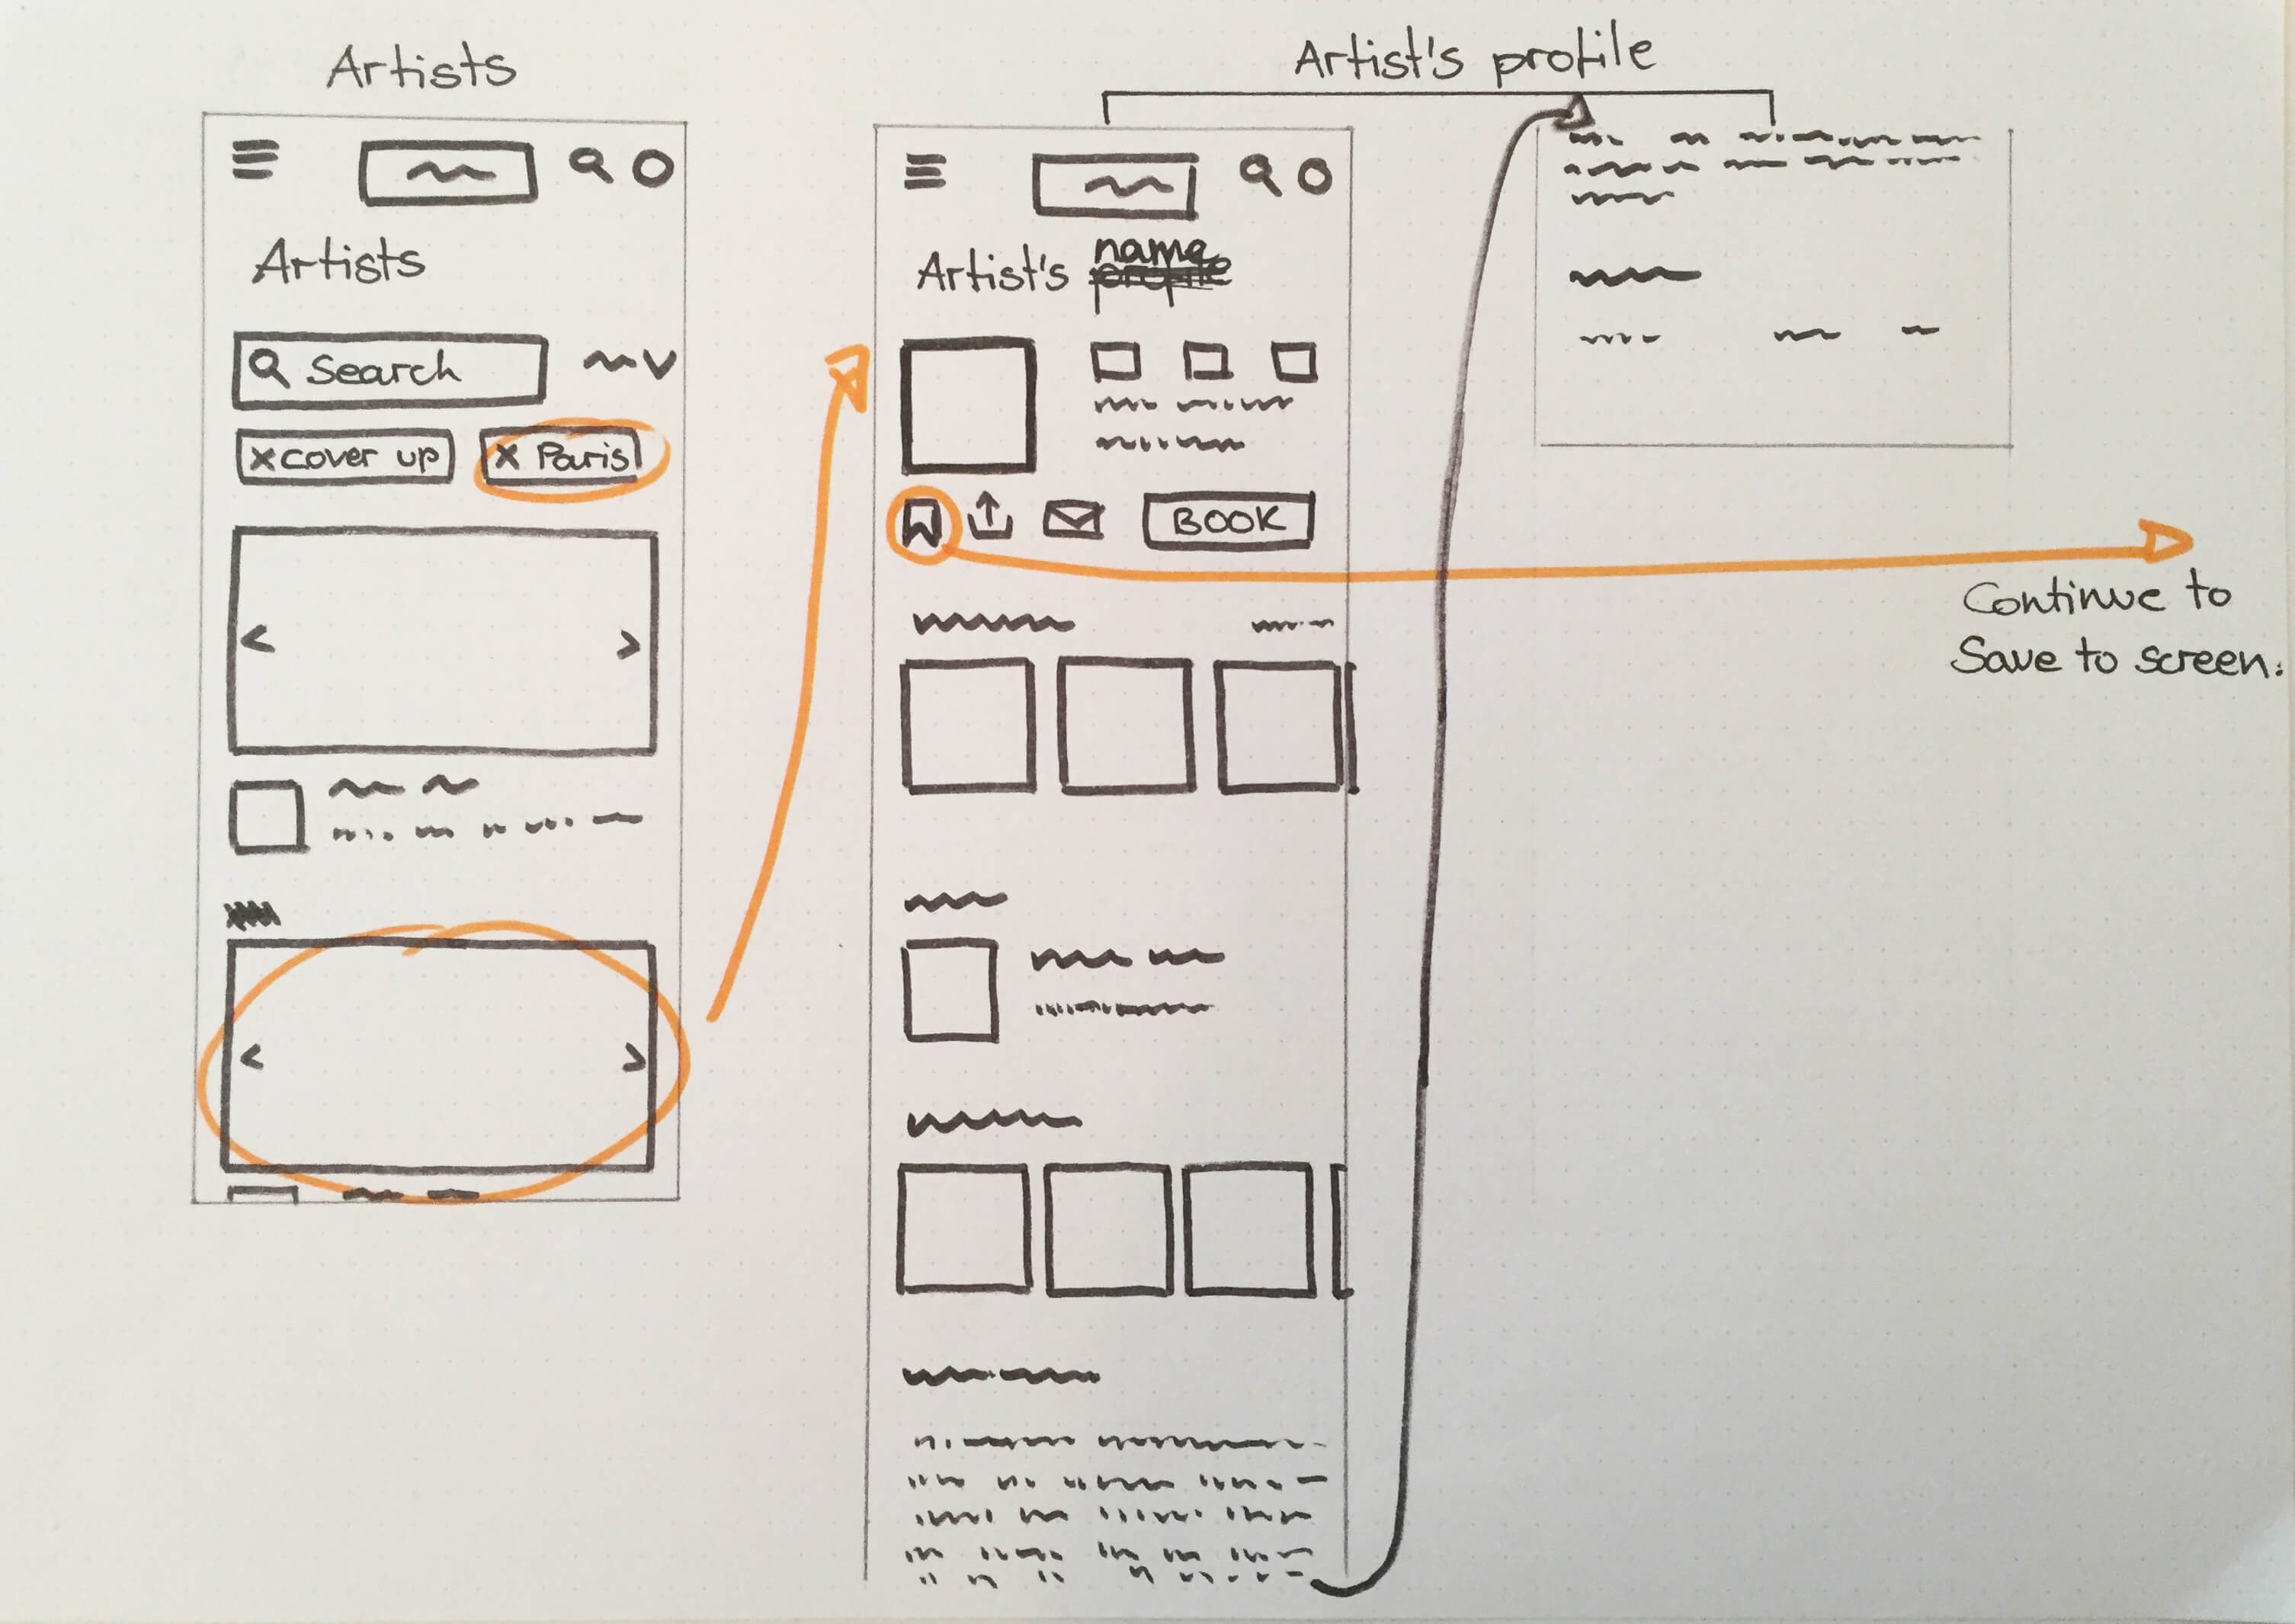 Artists
Artists
Search
x cover up
x Paris
Artist's profile
Artist's name
profile
BOOK
Continue to
Save to screen.